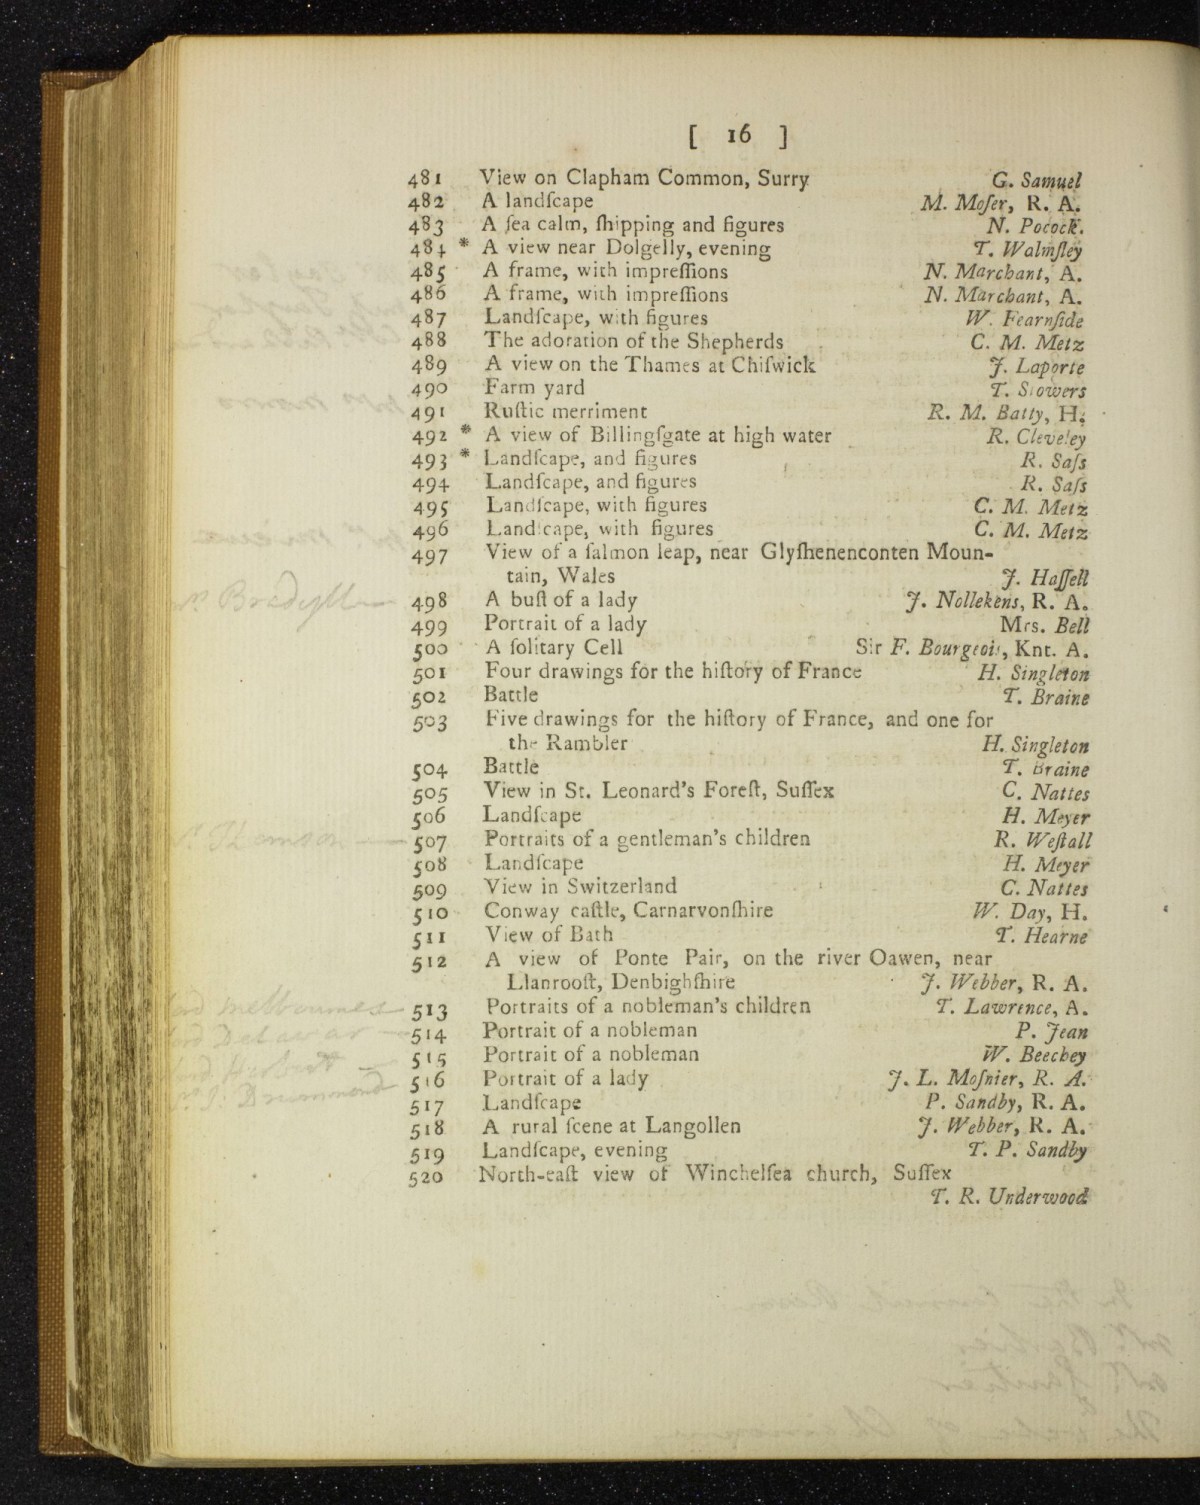 [ 16 ]
481 View on Clapham Common, Surry G. Samuel
482 A landſcape M. Moſer, R. A.
483 A ſea calm, ſhipping and figures N. Pocock.
484 * A view near Dolgelly, evening T. Walmſley
485 A frame, with impreſſions N. Marchant, A.
486 A frame, with impreſſions N. Marchant, A.
487 Landſcape, with figures W. Fearnſide
488 The adoration of the Shepherds C. M. Metz
489 A view on the Thames at Chiſwick J. Laporte
490 Farm yard T. Stowers
491 Ruſtic merriment R. M. Batty, H.
492 * A view of Billingſgate at high water R. Cleveley
493 * Landſcape, and figures R. Saſs
494 Landſcape, and figures R. Saſs
495 Landſcape, with figures C. M. Metz
496 Landſcape, with figures C. M. Metz
497 View of a ſalmon leap, near Glyſhenenconten Moun-
tain, Wales J. Haſſell
Mrs. Bradyll 498 A buſt of a lady J. Nollekens, R. A.
499 Portrait of a lady Mrs. Bell
500 A ſolitary Cell Sir F. Bourgeois, Knt. A.
501 Four drawings for the hiſtory of France H. Singleton
502 Battle T. Braine
503 Five drawings for the hiſtory of France, and one for
the Rambler H. Singleton
504 Battle T. Braine
505 View in St. Leonard's Foreſt, Suſſex C. Nattes
506 Landſcape H. Meyer
507 Portraits of a gentleman's children R. Weſtall
508 Landſcape H. Meyer
509 View in Switzerland C. Nattes
510 Conway caſtle, Carnarvonſhire W. Day, H.
511 View of Bath T. Hearne
512 A view of Ponte Pair, on the river Oawen, near
Llanrooſt, Denbighſhire J. Webber, R. A.
Lord Melbournes 513 Portraits of a nobleman's children T. Lawrence, A.
Lord Delawar 514 Portrait of a nobleman P. Jean
515 Portrait of a nobleman W. Beechey
Drummond 516 Portrait of a lady J. L. Moſnier, R. A.
517 Landſcape P. Sandby, R. A.
518 A rural ſcene at Langollen J. Webber, R. A.
519 Landſcape, evening T. P. Sandby
520 North-eaſt view of Winchelſea church, Suſſex
T. R. Underwood